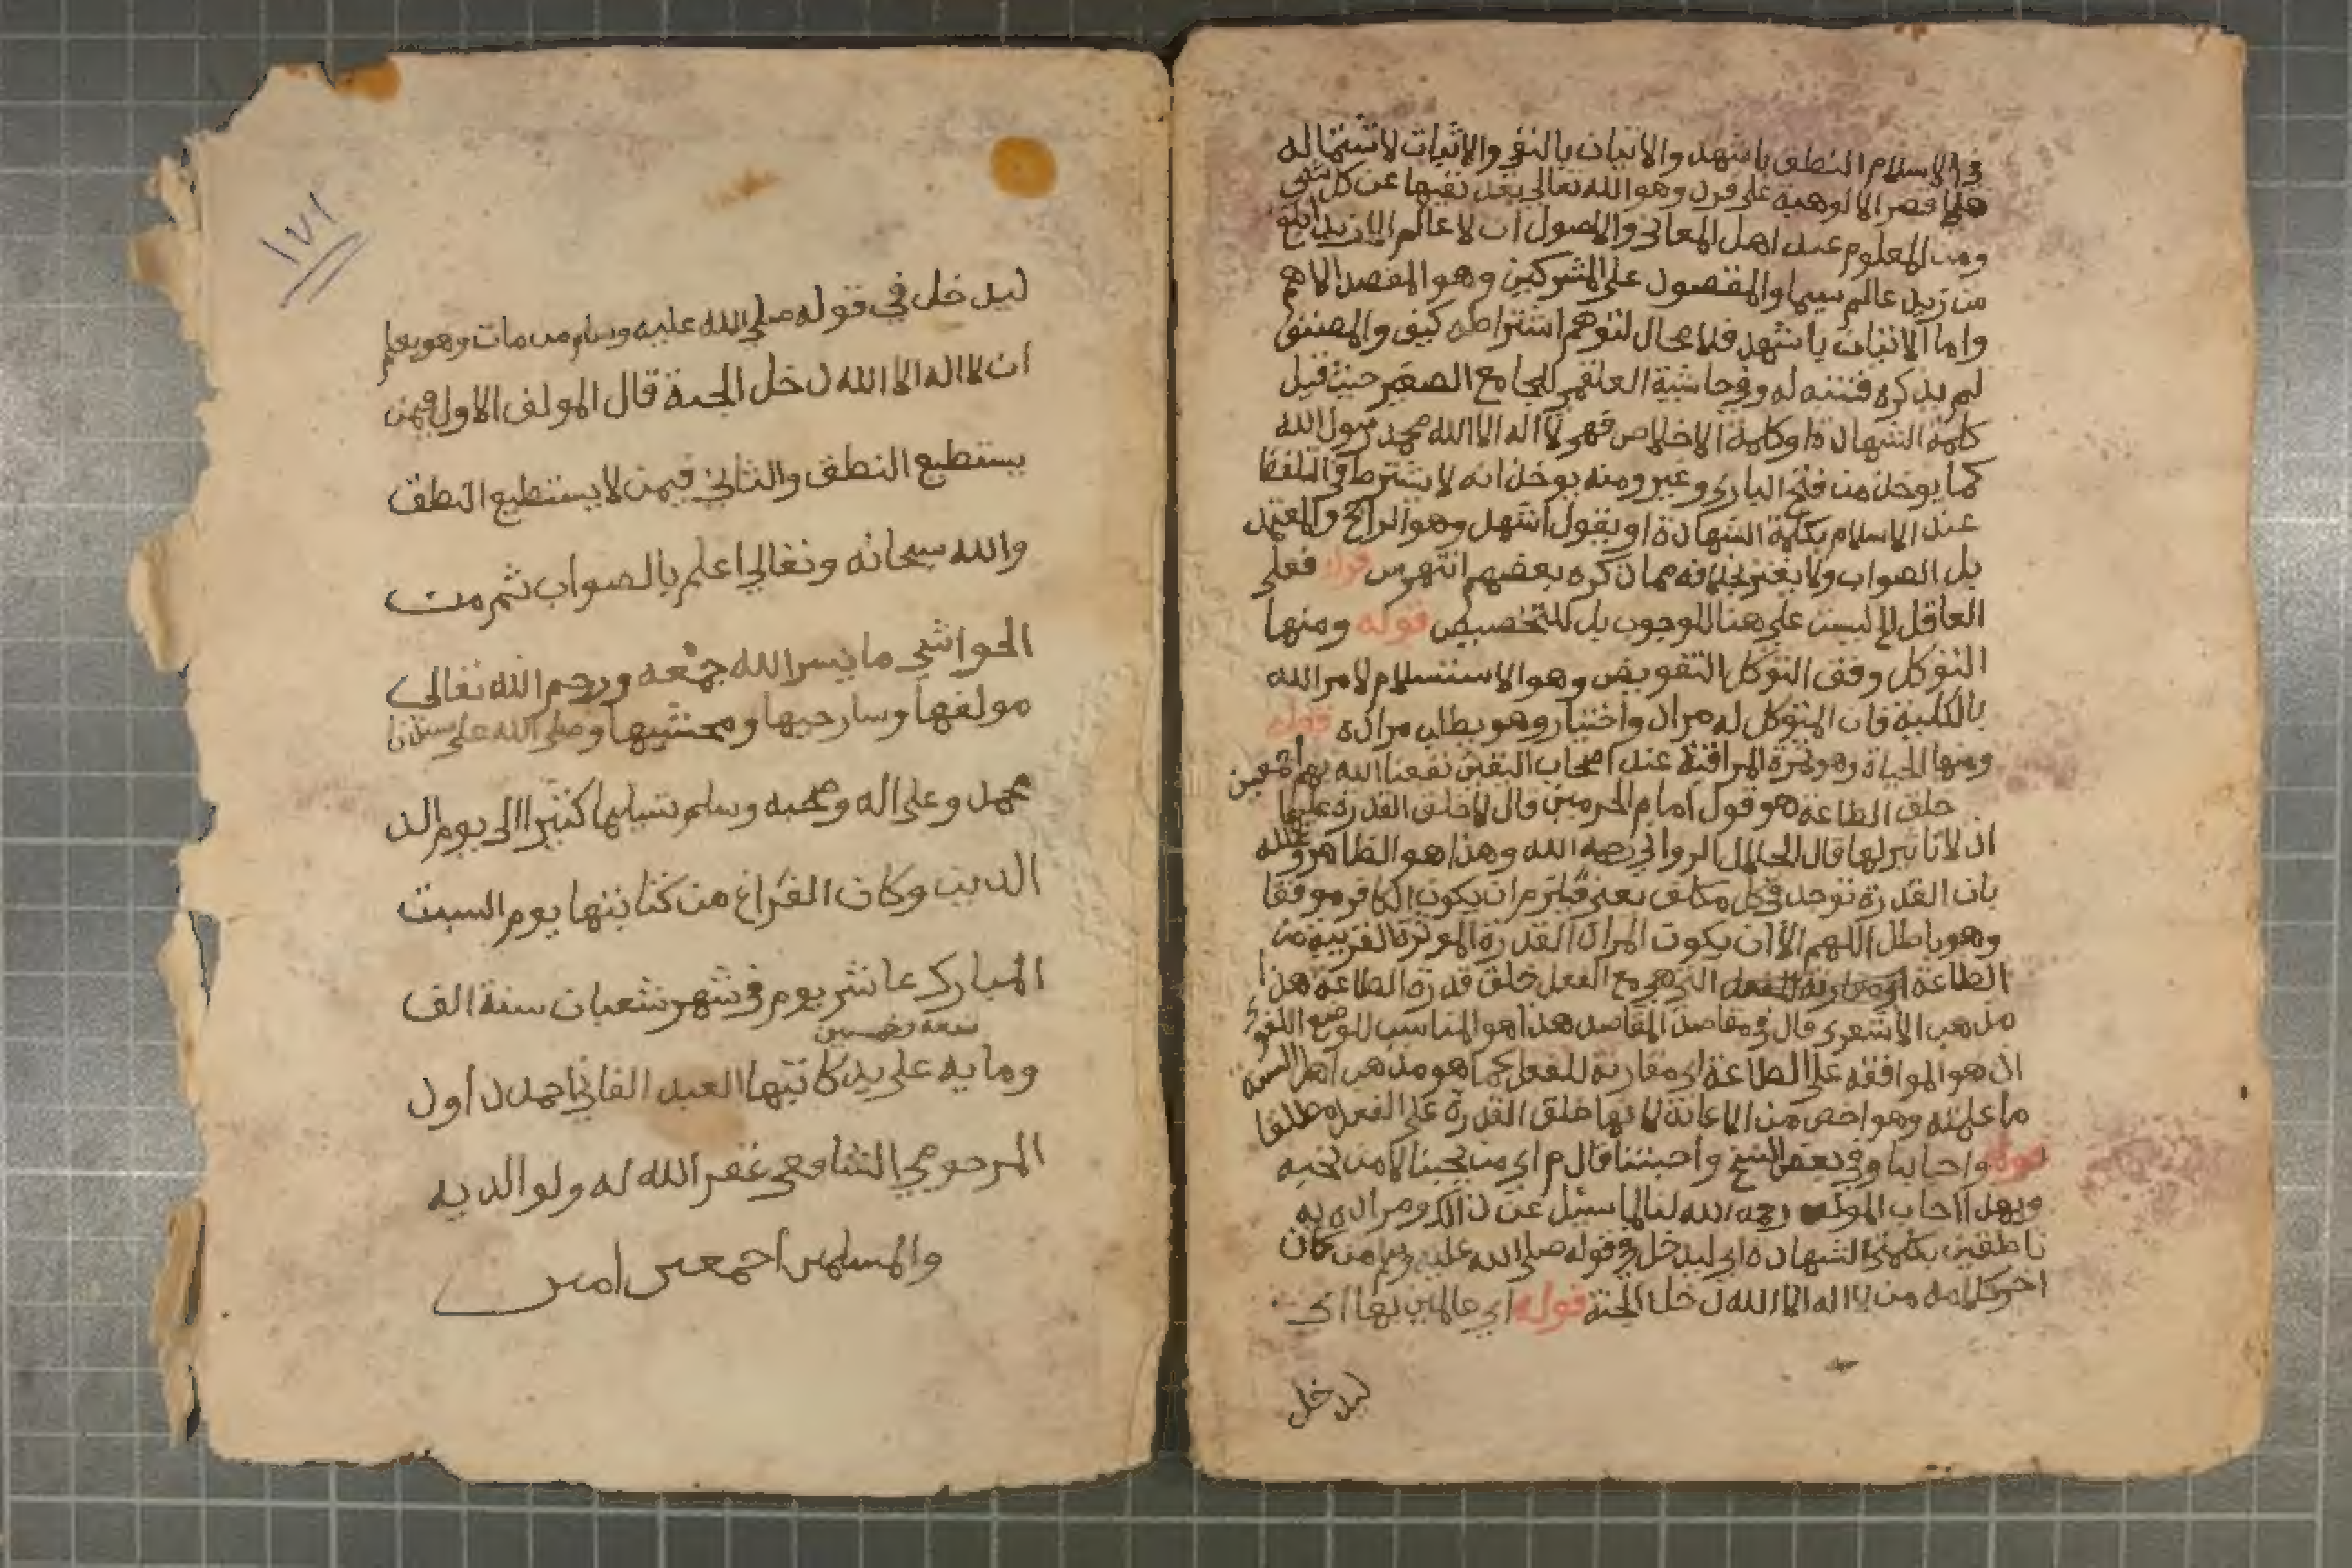 في الاسلام النطق باشهد والاتيان بالنفي والاثبات لاشتماله
علي قصر الالوهية علي فرد وهو الله تعالي بعد نفيها عن كل شي
ومن المعلوم عند اهل المعاني والاصول ان لا عالم الا زيد ابلغ
من زيد عالم سيما والمقصود علي المشركين وهو المقصد الاهم
واما الاتيان باشهد فلا مجال لتوهم اشتراطه كيف والمصنف
لم يذكره فتنبه له وفي حاشية العلقمي للجامع الصغير حيث قيل
كلمة الشهادة او كلمة الاخلاص فهي لا اله الا الله محمد رسول الله
كما يوخذ من فتح الباري وغيره ومنه يوخذ انه لا يشترط في التلفظ
عند الاسلام بكلمة الشهادة او يقول اشهد وهو الراجح والمعتمد
بل الصواب ولا يغتر بخلافه مما ذكره بعضهم انتهي س قوله فعلي
العاقل الخ ليست علي هنا للوجوب بل للتخصيص قوله ومنها
التوكل وفق التوكل التفويض وهو الاستسلام لامر الله
بالكلية فان المتوكل له مراد واختيار وهو يطلب مراده قوله
ومنها الحياة وهو ثمرة المراقبة عند اصحاب اليقين نفعنا الله بهم اجمعين
خلق الطاعة هو قول امام الحرمين قال لا خلق القدرة عليها
اذ لا تاثير لها قال الجلال الرواني رحمه الله وهذا هو الظاهر وعلله
بان القدرة توجد في كل مكلف يعني فيلزم ان يكون الكافر موفقا
وهو باطل اللهم الا ان يكون المراد القدرة الموثرة القريبة من
الطاعة اي مقارنة للفعل التي هي مع الفعل خلق قدرة الطاعة هذا
مذهب الاشعري قال في مقاصد المقاصد هذا هو المناسب للوضع اللغوي
اذ هو الموافقة علي الطاعة اي مقارنة للفعل كما هو مذهب اهل السنة
ما علمته وهو اخص من الاعانة لانها خلق القدرة علي الفعل مطلقا
قوله واحبابنا وفي بعض النسخ واحبتنا قال م اي من يحبنا لا من نحبه
وبهذا اجاب المولف رحمه الله لنا لما سئل عن ذالك ومراده به
ناطقين بكلمتي الشهادة اي ليدخل في قوله صلي الله عليه وسلم من كان
اخر كلامه من لا اله الا الله دخل الجنة قوله اي عالمين بها اي
ليدخل
١٧١
ليدخل في قوله صلي الله عليه وسلم من مات وهو يعلم
ان لا اله الا الله دخل الجنة قال المولف الاول فيمن
يستطيع النطق والثاني فيمن لا يستطيع النطق
والله سبحانه وتعالي اعلم بالصواب تم من
الحواشي ما يسر الله جمعه ورحم الله تعالي
مولفها وسارحيها ومحشيها وصلي الله علي سيدنا
محمد وعلي اله وصحبه وسلم تسليما كثيرا الي يوم الد
الدين وكان الفراغ من كتابتها يوم السبت
المبارك عاشر يوم في شهر شعبان سنة الف
تسعة وخمسين
وما يه علي يد كاتبها العبد الفاني احمد داود
المرحومي الشافعي غفر الله له ولوالديه
والمسلمين اجمعين امين